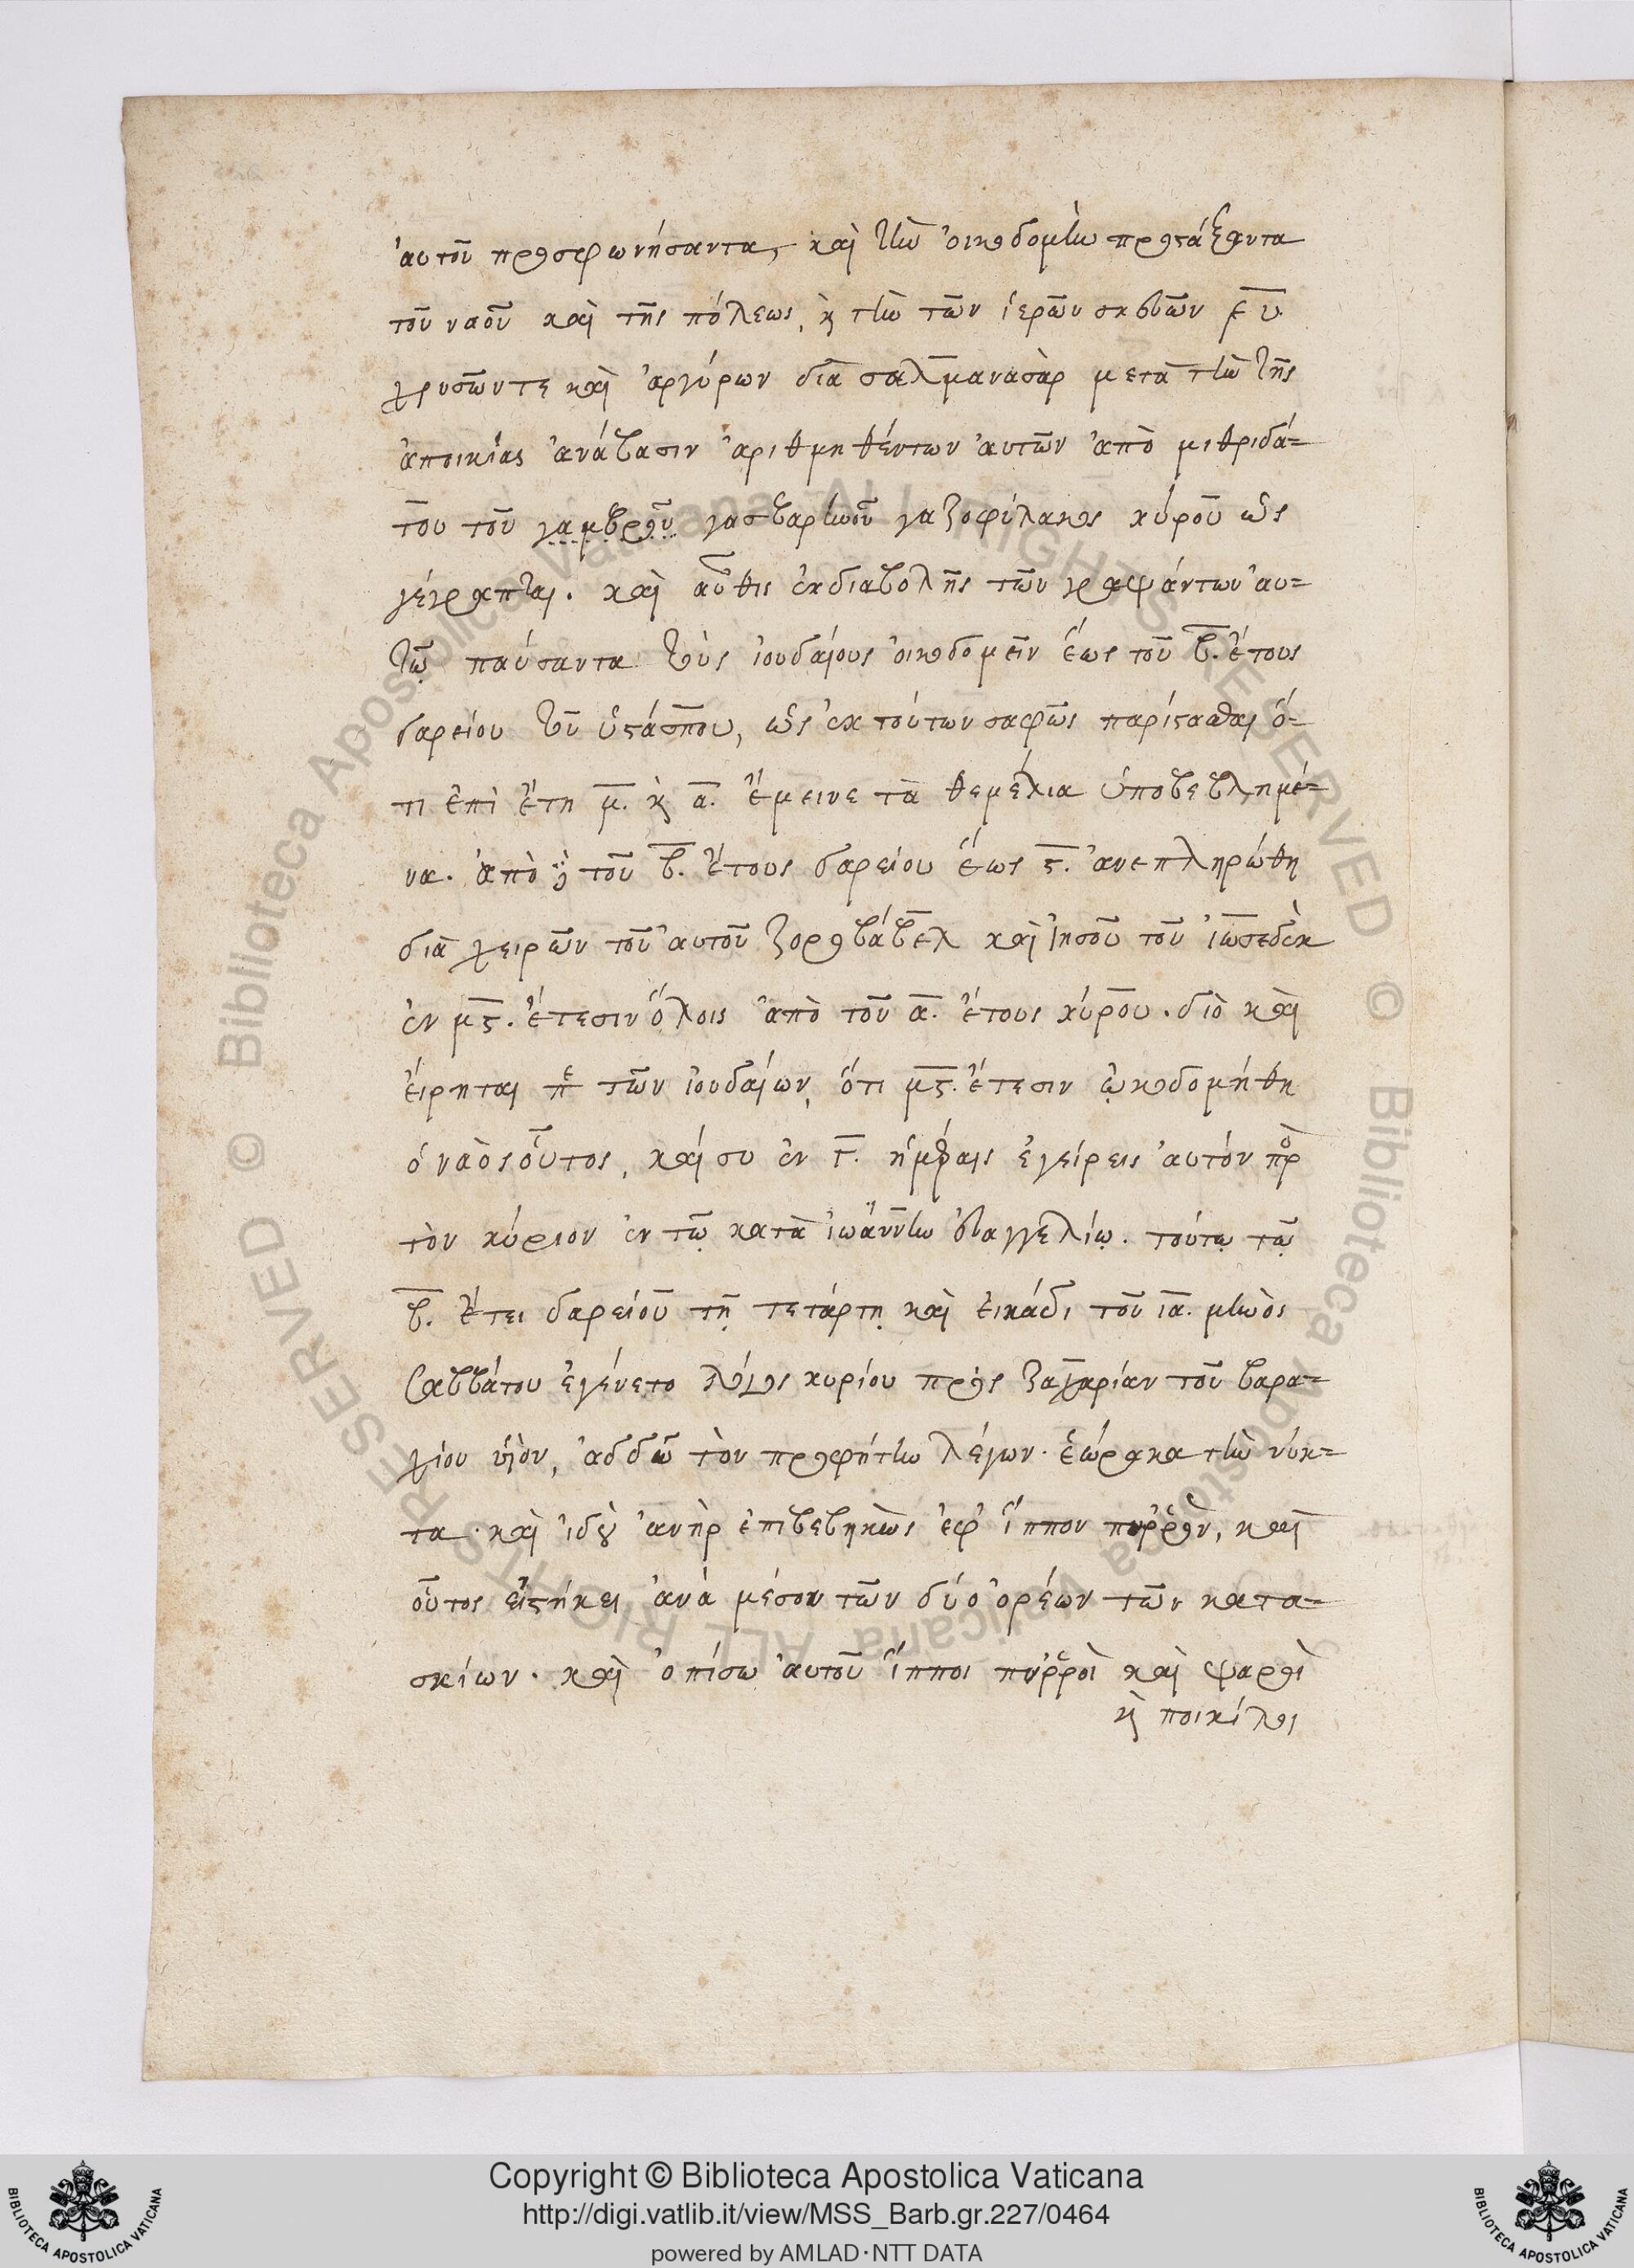 ἀυτοῦ προσφωνήσαντα, καὶ τὴν ὀικοδομὴν προστάξαντα
τοῦ ναοῦ καὶ τῆς πόλεως, κ τὴν τῶν ἱερῶν σκευῶν ͵ευ
χρυσῶν τε καὶ ἀργύρων διὰ σαλμανασὰρ μετὰ τὴν τῆς
ἀποικίας ἀνάβασιν ἀριθμηθέντων ἀυτῶν ἀπὸ μιθριδά=
του τοῦ γαμβροῦ γασβαρηνοῦ γαζοφύλακος κύρου ὡς
γέγραπται. καὶ αὖθις ἐκ διαβολῆς τῶν γραψάντων ἀυ=
τῷ παύσαντα τοὺς ἰουδαίους ὀικοδομεῖν ἕως τοῦ β. ἔτους
δαρείου τοῦ ὑστάσπου, ὡς ἐκ τούτων σαφῶς παρίστασθαι ὅ=
τι ἐπὶ ἔτη μ. κ α. ἔμεινε τὰ θεμέλια ὑποβεβλημέ=
να. ἀπὸ δὲ τοῦ β. ἔτους δαρείου ἕως ϛ. ἀνεπληρώθη
διὰ χειρῶν τοῦ ἀυτοῦ ζοροβάβελ καὶ ἰησοῦ τοῦ ἰωσεδὲκ
ἐν μϛ. ἔτεσιν ὅλοις ἀπὸ τοῦ α. ἔτους κύρου. διὸ καὶ
ἔιρηται π τῶν ἰουδαίων, ὅτι μϛ. ἔτεσιν ᾠκοδομήθη
ὁ ναὸς οὗτος, καί συ ἐν γ. ἡμέραις ἐγείρεις ἀυτόν πρ
τὸν κύριον ἐν τῷ κατὰ ἰωάννην ἐυαγγελίῳ. τούτῳ τῷ
β. ἔτει δαρείου τῇ τετάρτῃ καὶ ἐικάδι τοῦ ια. μηνὸς
σαββάτου ἐγένετο λόγος κυρίου πρὸς ζαχαρίαν τοῦ βαρα=
χίου ὑιὸν, ἀδδὼ τὸν προφήτην λέγων. ἑώρακα τὴν νύκ=
τα. καὶ ἰδοὺ ἀνὴρ ἐπιβεβηκὼς ἐφ' ἵππον πυῤῥὸν, καὶ
οὗτος εἱστήκει ἀνὰ μέσον τῶν δύο ὀρέων τῶν κατα=
σκίων. καὶ ὀπίσω ἀυτοῦ ἵπποι πυῤῥοὶ καὶ ψαροὶ
κ ποικίλοι
Copyright © Biblioteca Apostolica Vaticana
http://digi.vatlib.it/view/MSS_Barb.gr.227/0464
powered by AMLAD·NTT DATA